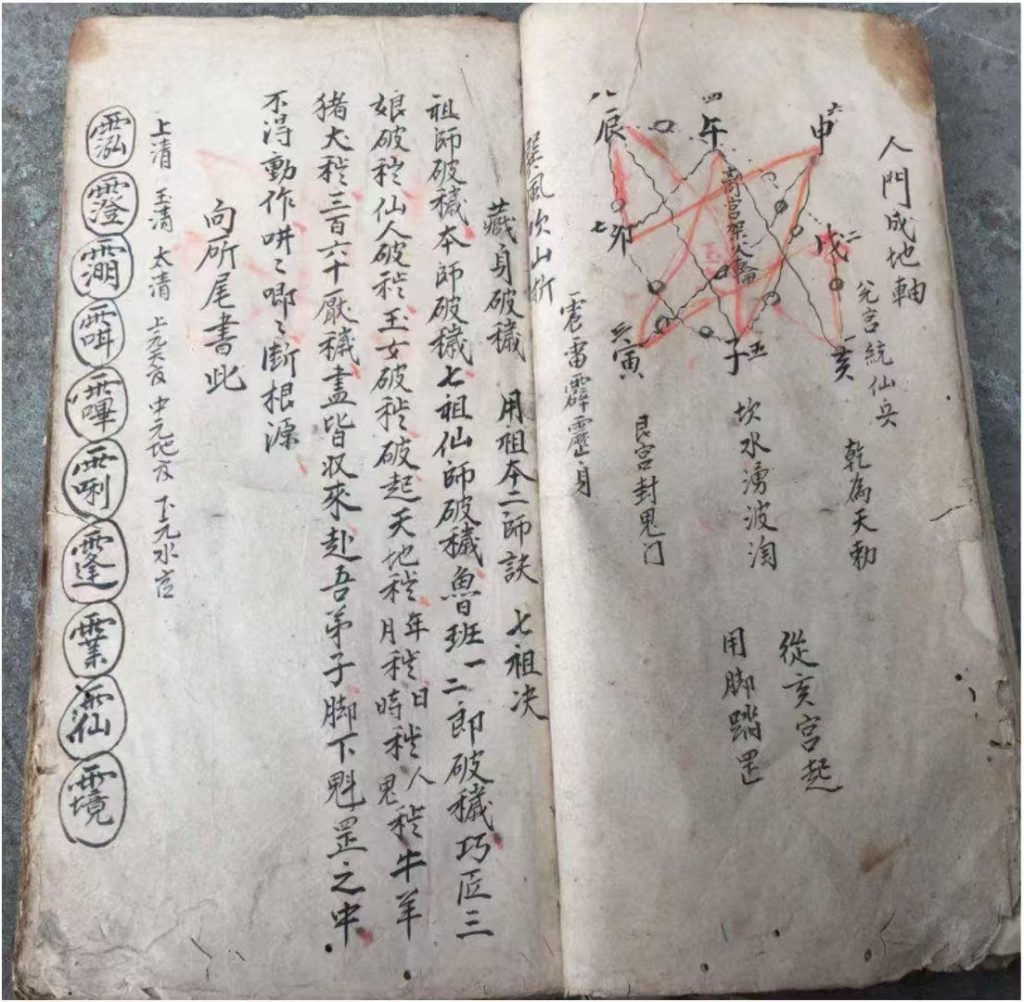 人門成地軸
兌宮統仙兵
乾為天勅
申
二戌
一亥
四午
离宮架火輪
五子
八辰
七卯
寅
坎水湧波淘
艮宮封鬼门
震雷霹靂身
巽風吹山
從亥宮起
用脚踏罡
藏身破穢 用祖本二師訣 七祖决
祖師破穢本師破穢七祖仙師破穢魯班一二郎破穢巧匠三
娘破秽仙人破秽玉女破秽破起天地秽年月秽日時秽人鬼秽牛羊
猪犬秽三百六十厭穢盡皆収來赴吾弟子脚下魁罡之中
不得動作吽〻唧〻断根源
向所尾書此
上清 玉清 太清 上元天官 中元地官 下元水官